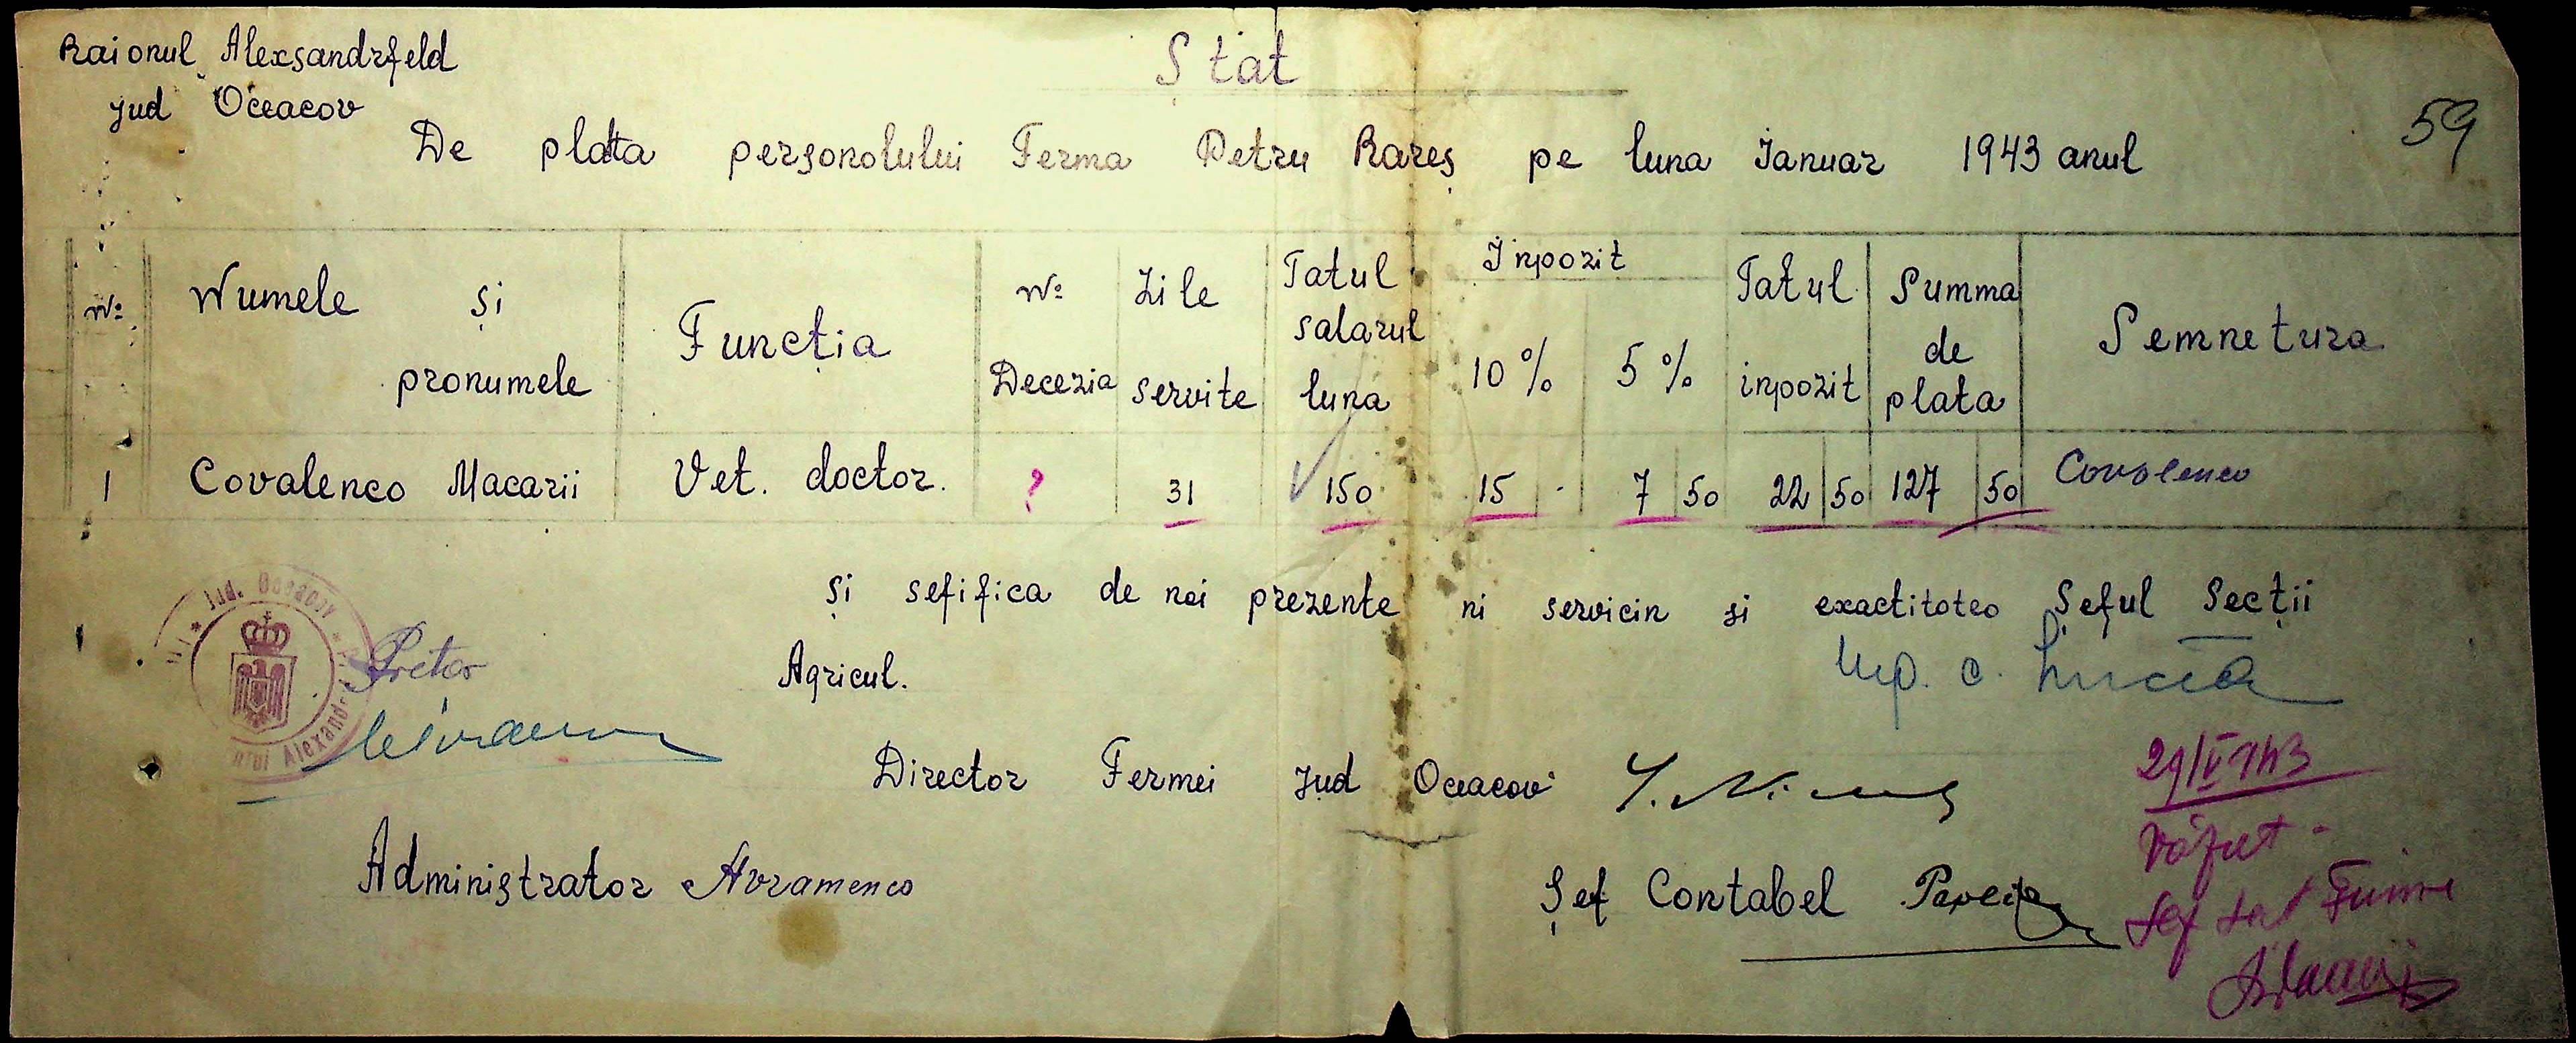 Raionul Alexsandrfeld
Jud Oceacov
Stat
59
De plata personolului Ferma Petru Rareș pe luna Ianuar 1943 anul
№ Numele și pronumele Funcția № Decezia Zile servite Tatul salarul luna Inpozit 10% 5% Tatul inpozit Summa de plata Semnetura
1 Covalenco Macarii Vet. doctor. ? 31 150 15 - 7 50 22 50 127 50 Covolenco
și sefifica de noi prezente ni servicin si exactitoteo Șeful Secții
Agricul.
Jud. Oceacov
Pretor
Director Fermei Jud Oceacov
29/V 943
Văzut
Șef
Administrator Avramenco
Șef Contabel